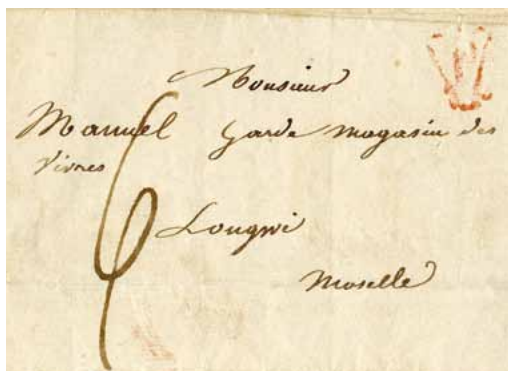 Monsieur
Manuel garde magasin des
vivres
Longwi
Moselle
6